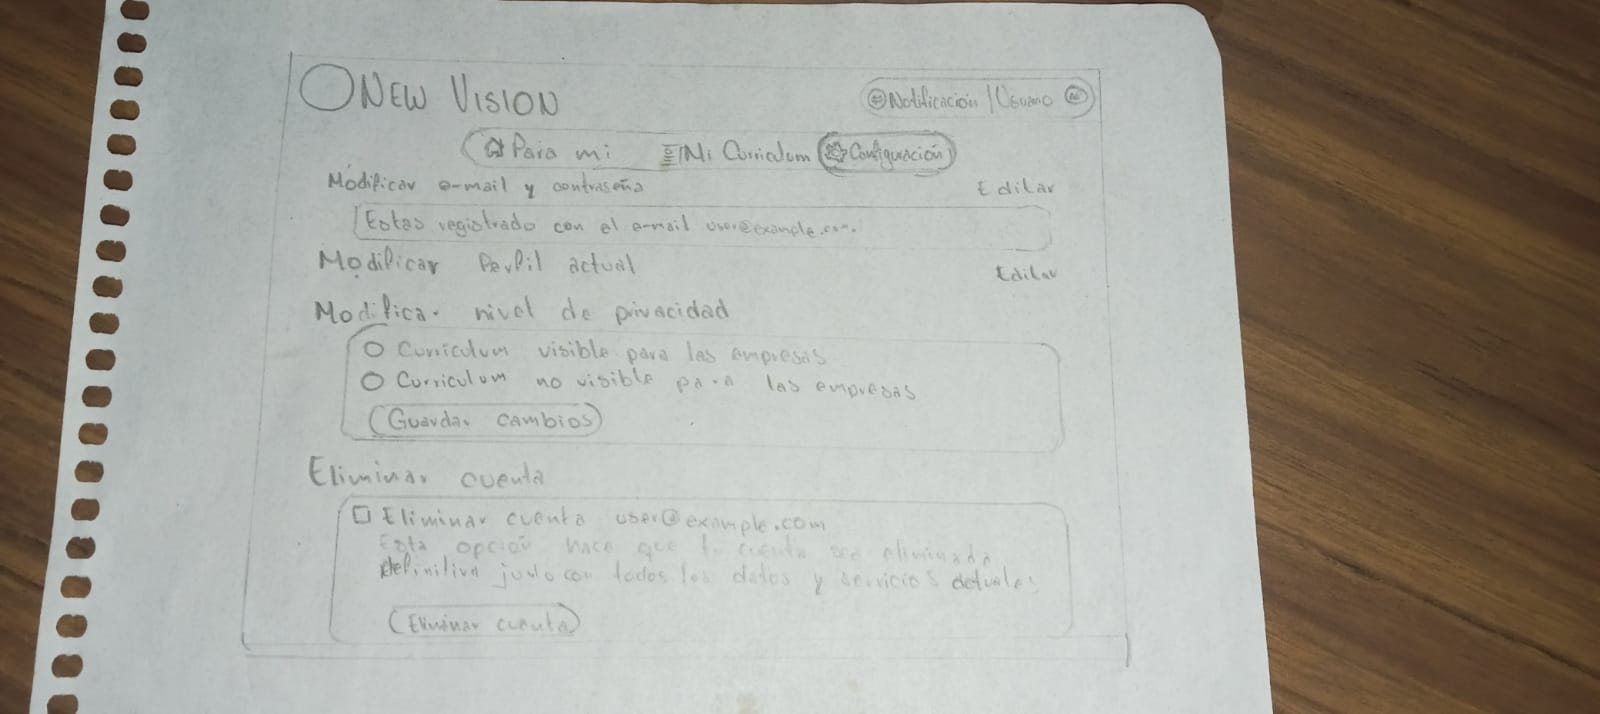 NEW VISION
Notificación | Usuario
Para mi Mi Curriculum Configuración
Modificar e-mail y contraseña Editar
Estas registrado con el e-mail user@example.com.
Modificar Perfil actual Editar
Modificar nivel de privacidad
Curriculum visible para las empresas
Curriculum no visible para las empresas
Guardar cambios
Eliminar cuenta
Eliminar cuenta user@example.com
Esta opción hace que tu cuenta sea eliminada
definitiva junto con todos los datos y servicios actuales
Eliminar cuenta